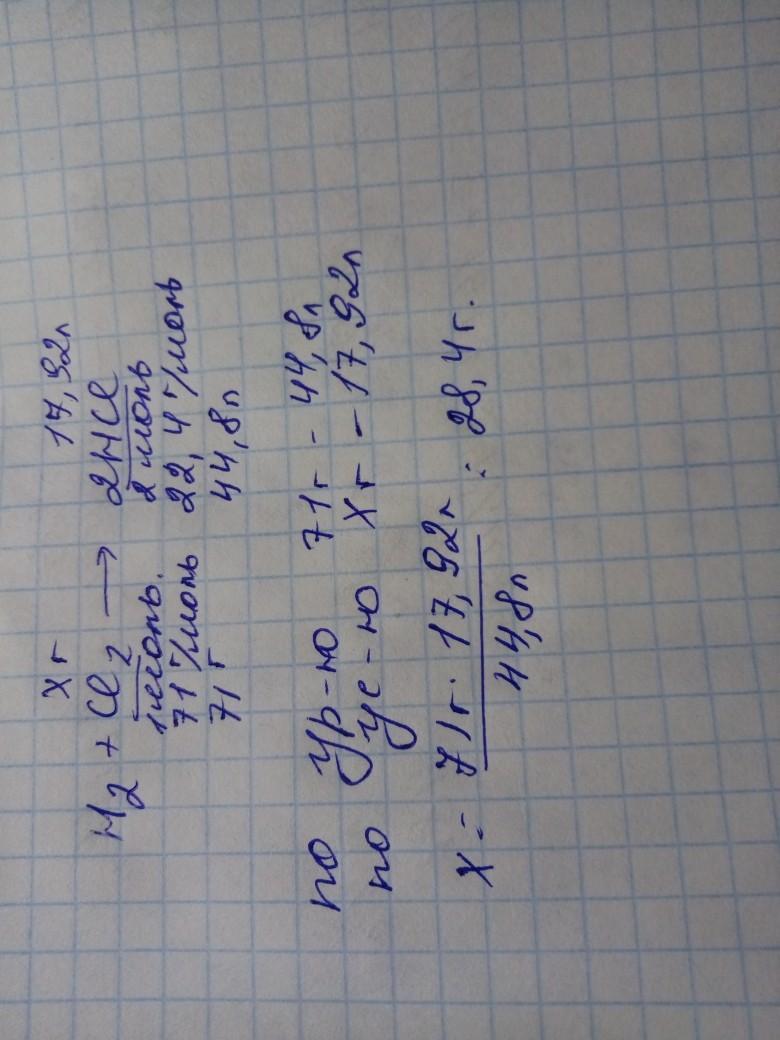 Xг 17,92л
H2 + Cl2 → 2HCl
1моль. 2 моль
71 г/моль 22,4 г/моль
71 г 44,8л
по ур-ю 71г - 44,8л
по ус-ю Xг - 17,92л
X = 71г · 17,92л : 28,4г.
44,8л